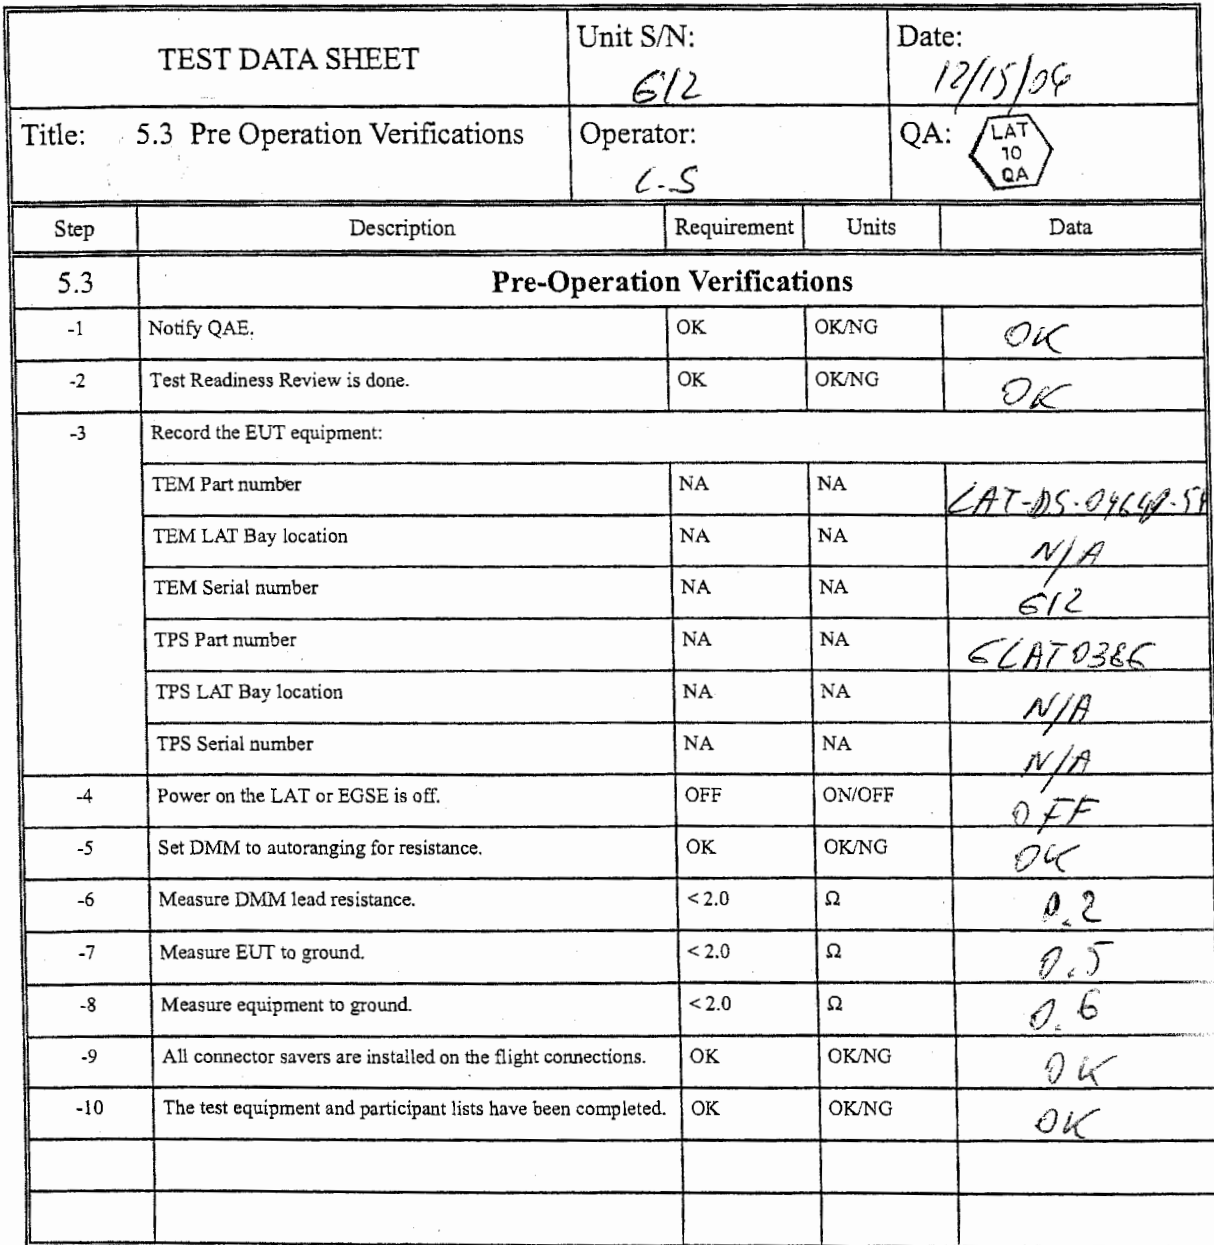 TEST DATA SHEET
Unit S/N:
612
Date:
12/15/04
Title: 5.3 Pre Operation Verifications
Operator:
L.S
QA:
LAT
10
QA
Step Description Requirement Units Data
5.3 Pre-Operation Verifications
-1 Notify QAE. OK OK/NG OK
-2 Test Readiness Review is done. OK OK/NG OK
-3 Record the EUT equipment:
TEM Part number NA NA
TEM LAT Bay location NA NA N/A
TEM Serial number NA NA 612
TPS Part number NA NA
TPS LAT Bay location NA NA N/A
TPS Serial number NA NA N/A
-4 Power on the LAT or EGSE is off. OFF ON/OFF OFF
-5 Set DMM to autoranging for resistance. OK OK/NG OK
-6 Measure DMM lead resistance. < 2.0 Ω 0.2
-7 Measure EUT to ground. < 2.0 Ω 0.5
-8 Measure equipment to ground. < 2.0 Ω 0.6
-9 All connector savers are installed on the flight connections. OK OK/NG OK
-10 The test equipment and participant lists have been completed. OK OK/NG OK